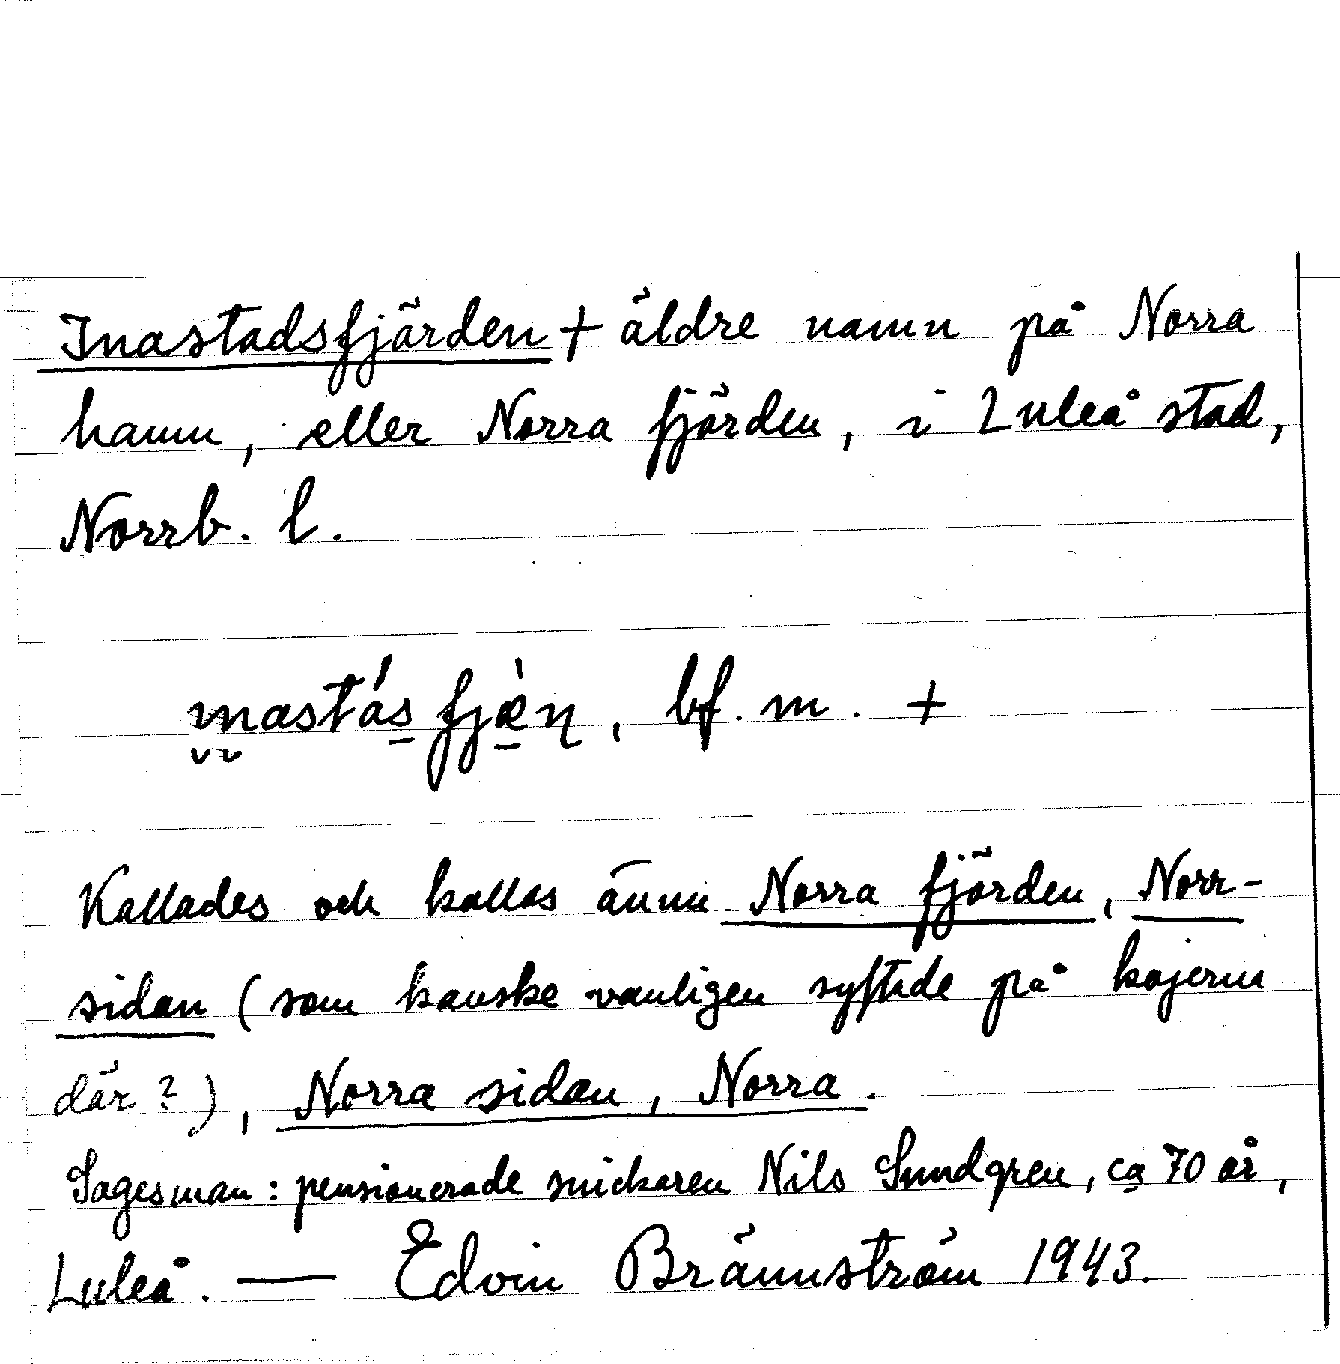 Inastadsfjärden + äldre namn på Norra
hamn, eller Norra fjärden, i Luleå stad,
Norrb. l.
bf. m. +
Kallades och kallas ännu Norra fjärden, Norr-
sidan (som kanske vanligen syftade på kajerna
där?), Norra sidan, Norra.
Sagesman: pensionerade snickaren Nils Sundgren, ca 70 år,
Luleå. — Edvin Brännström 1943.